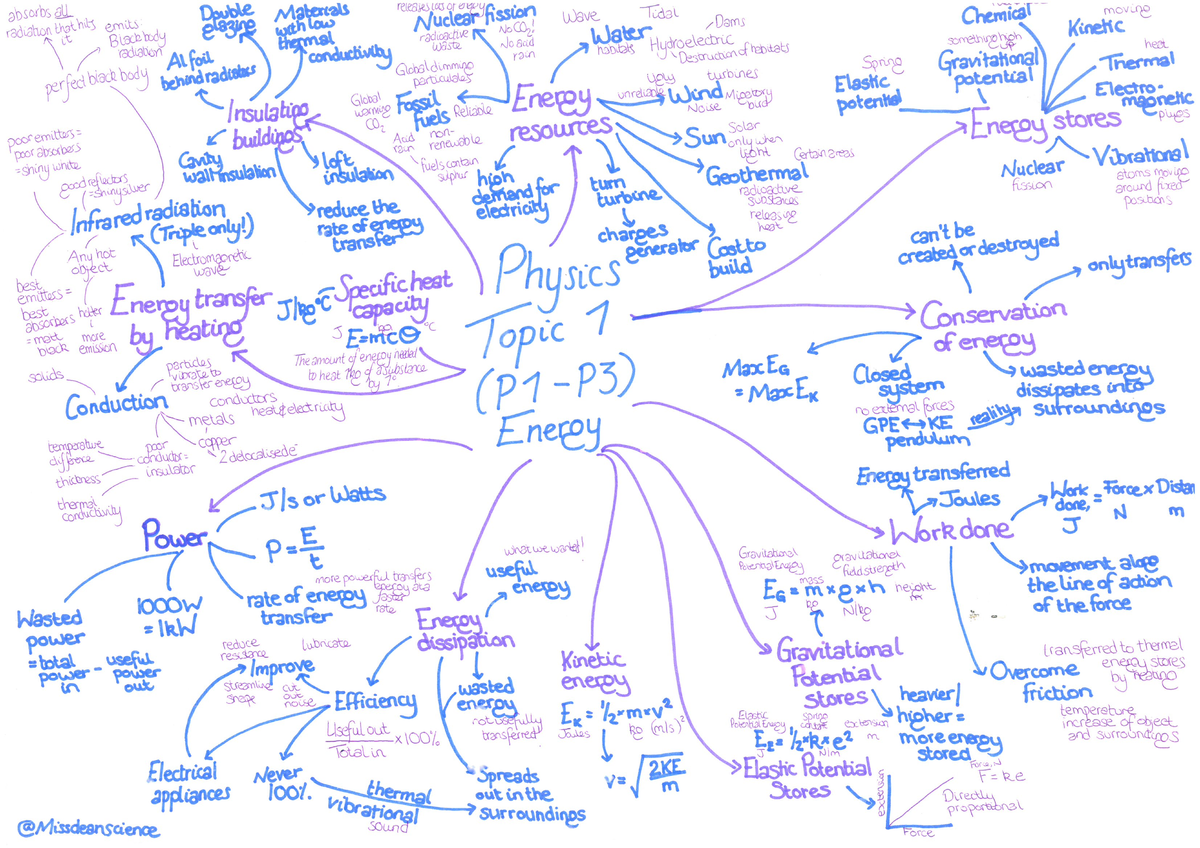 Physics
Topic 1
(P1-P3)
Energy
absorbs all
radiation that hits
it
emits:
Blackbody
radiation
perfect black body
poor emitters =
poor absorbers
= shiny white
good reflectors
= shiny silver
Infrared radiation
(Triple only!)
Any hot
object
Electromagnetic
wave
best
emitters =
best
absorbers
= matt
black
hotter
=
more
emission
Energy transfer
by heating
Conduction
solids
particles
vibrate to
transfer energy
conductors
heat & electricity
metals
copper
2 delocalised e-
poor
conductor =
insulator
temperature
difference
thickness
thermal
conductivity
Double
glazing
Materials
with low
thermal
conductivity
Al foil
behind radiators
Insulating
buildings
Cavity
wall insulation
loft
insulation
reduce the
rate of energy
transfer
J/kg°C
Specific heat
capacity
J
kg
°C
E=mcΘ
The amount of energy needed
to heat 1kg of a substance
by 1°
releases lots of energy
Nuclear fission
radioactive
waste
No CO2!
No acid
rain
Global dimming
particulates
Global
warming
CO2
Fossil
fuels
Reliable
Acid
rain
non-
renewable
fuels contain
sulphur
Energy
resources
Wave
Tidal
Water
habitats
Dams
Hydroelectric
Destruction of habitats
ugly
unreliable
turbines
Wind
Noise
Migratory
bird
Sun
Solar
only when
light
Geothermal
Certain areas
radioactive
substances
releasing
heat
high
demand for
electricity
turn
turbine
charges
generator
Cost to
build
Chemical
something high
up
moving
Kinetic
Spring
Elastic
potential
Gravitational
potential
heat
Thermal
Electro-
magnetic
plugs
Energy stores
Nuclear
fission
Vibrational
atoms moving
around fixed
positions
can't be
created or destroyed
only transfers
Conservation
of energy
Max EG
= Max EK
Closed
system
no external forces
GPE↔KE
pendulum
reality
wasted energy
dissipates into
surroundings
Energy transferred
Joules
Work done
Work
done, = Force, x Distan
J
N
m
movement along
the line of action
of the force
Overcome
friction
transferred to thermal
energy stores
by heating
temperature
increase of object
and surroundings
Power
J/s or Watts
P = E
t
rate of energy
transfer
more powerful transfers
energy at a
faster
rate
1000W
= 1kW
Wasted
power
= total
power
in
- useful
power
out
Energy
dissipation
what we wanted!
useful
energy
wasted
energy
not usefully
transferred
Efficiency
Useful out
Total in
x100%
Improve
reduce
resistance
lubricate
streamline
shape
cut
out
noise
Electrical
appliances
Never
100%
thermal
vibrational
sound
Spreads
out in the
surroundings
Kinetic
energy
EK = 1/2 x m x v2
Joules
kg
(m/s)2
v = √ 2KE
m
Gravitational
Potential Energy
mass
gravitational
field strength
EG = m x g x h
height
m
J
kg
N/kg
Gravitational
Potential
Stores
heavier/
higher =
more energy
stored
Elastic
Potential Energy
spring
extension
m
EE = 1/2 x k x e2
J
N/m
Elastic Potential
Stores
extension
Force, N
F = ke
Directly
proportional
Force
@Missdeanscience